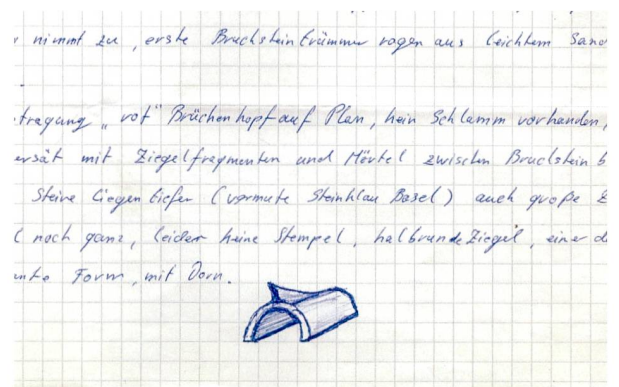 nimmt zu, erste Bruchsteintrümmer ragen aus leichtem Sand
tragung „rot" Brückenkopf auf Plan, kein Schlamm vorhanden,
ersät mit Ziegelfragmenten und Mörtel zwischen Bruchstein b
Steine liegen tiefer (vermute Steinklau Basel) auch große Z
noch ganz, leider keine Stempel, halbrunde Ziegel, einer d
ante Form, mit Dorn.